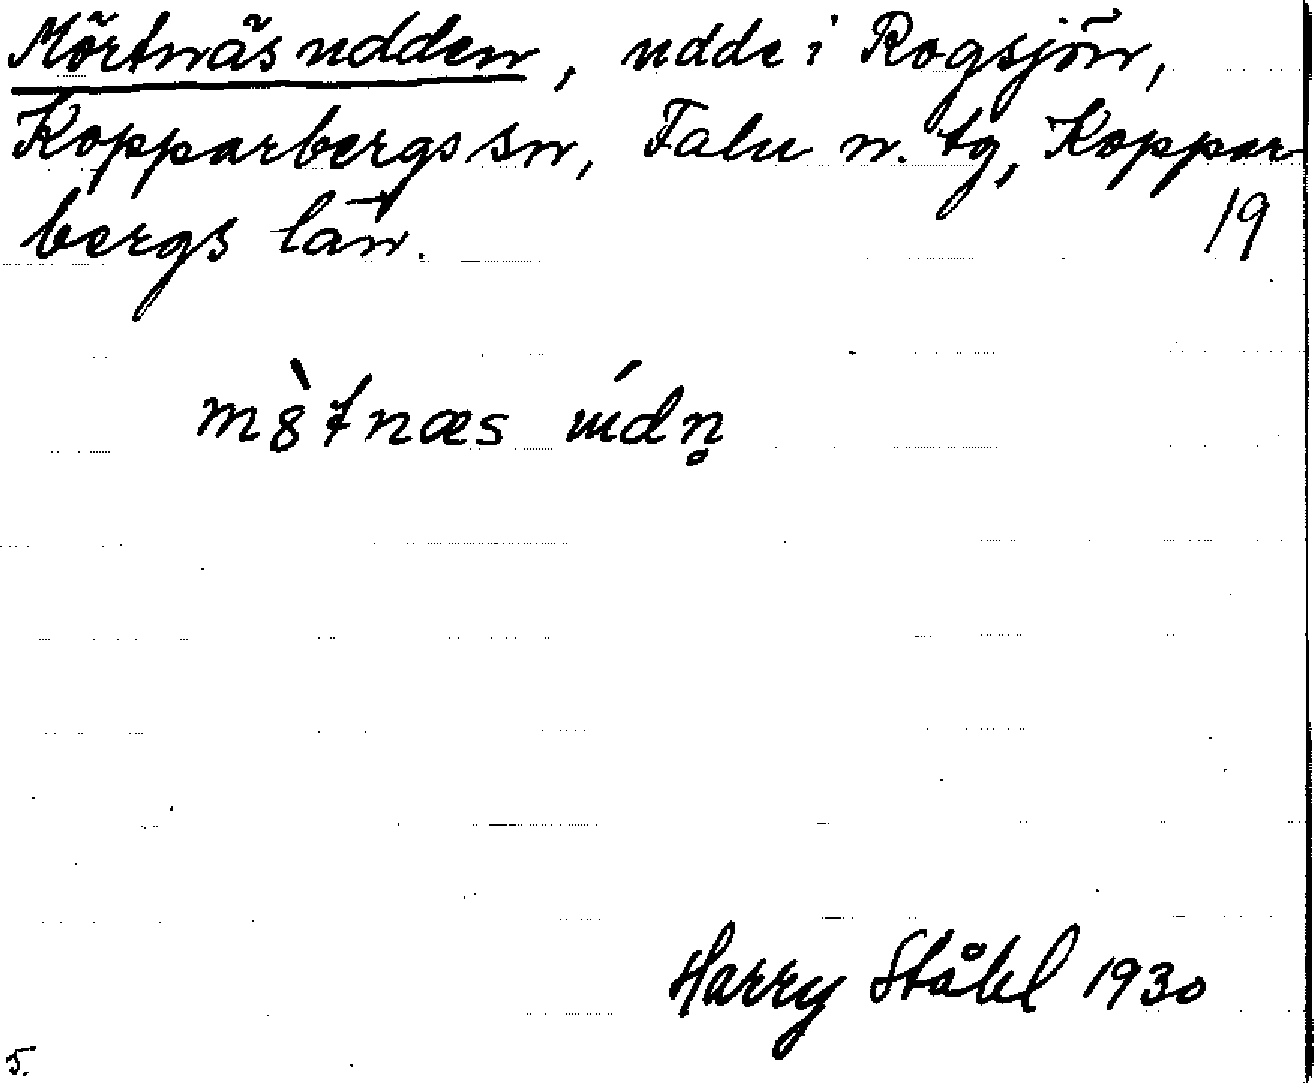 Mörtnäsudden, udde i Rogsjön,
Kopparbergs sn, Falu n. tg, Koppar-
bergs län.
19
Harry Ståhl 1930